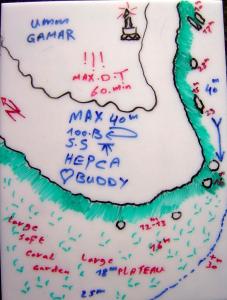 umm
GAMAR
!!!
MAX.D.T
60.min
MAX 40m
100.B
S.S
HEPCA
BUDDY
N
40
m
12-13m
16m
Large
Soft
Coral
Garden
Large
18m PLATEAU
25m